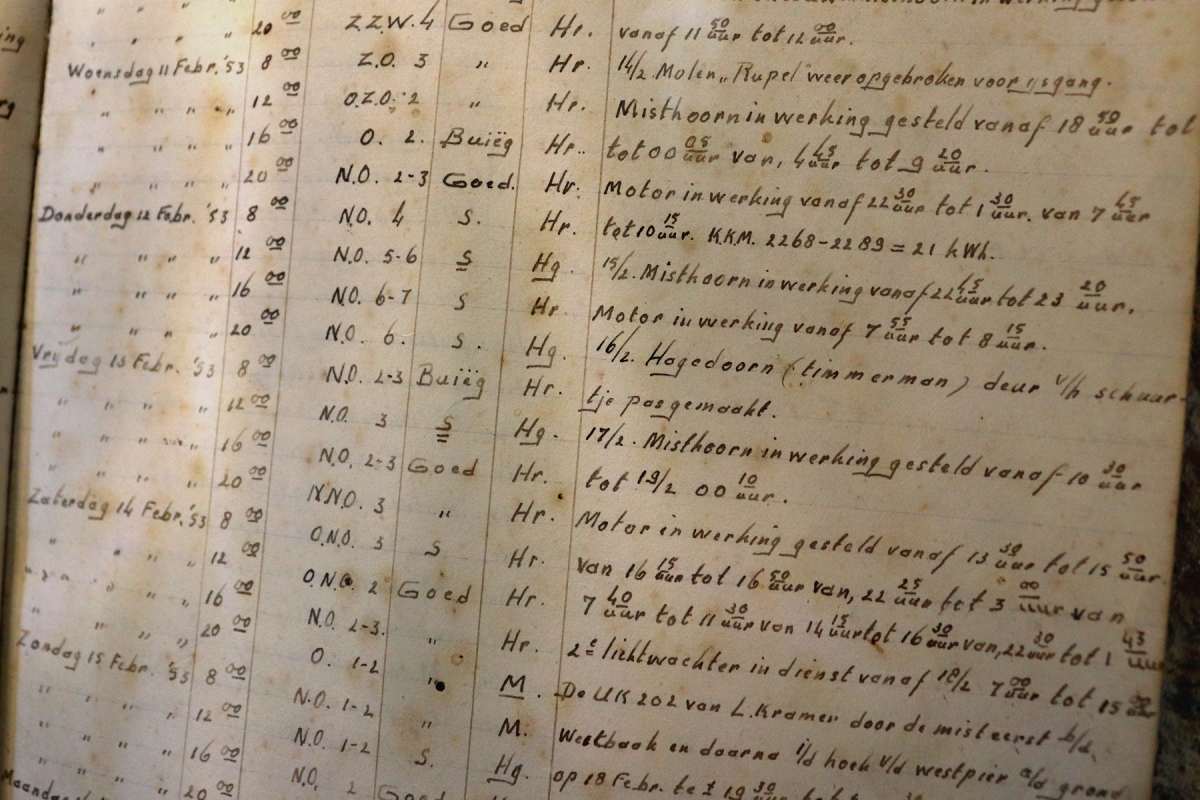 " " " " 20 00 Z.Z.W. 4 Goed Hr. vanaf 11 50 uur tot 12 00 uur.
Woensdag 11 Febr. '53 8 00 Z.O. 3 " Hr. 14/2. Molen "Rupel" weer opgebroken voor ijsgang.
" " " " 12 00 O.Z.O. 2 " Hr. Misthoorn in werking gesteld vanaf 18 50 uur tot
" " " " 16 00 O. 2. Buiëg Hr. tot 00 05 uur van, 4 45 uur tot 9 20 uur.
" " " " 20 00 N.O. 2-3 Goed. Hr. Motor in werking vanaf 22 30 uur tot 1 30 uur. van 7 45 uur
Donderdag 12 Febr. '53 8 00 N.O. 4 S. Hr. tot 10 15 uur. K.K.M. 2268-2289 = 21 kWh.
" " " " 12 00 N.O. 5-6 S Hg. 15/2. Misthoorn in werking vanaf 22 45 uur tot 23 20 uur.
" " " " 16 00 N.O. 6-7 S Hr. Motor in werking vanaf 7 55 uur tot 8 15 uur.
" " " " 20 00 N.O. 6. S. Hg. 16/2. Hagedoorn (timmerman) deur v/h schuur-
Vrijdag 13 Febr. '53 8 00 N.O. 2-3 Buiëg Hr. tje pasgemaakt.
" " " " 12 00 N.O. 3 S Hg. 17/2. Misthoorn in werking gesteld vanaf 10 30 uur
" " " " 16 00 N.O. 2-3 Goed Hr. tot 19/2 00 10 uur.
" " " " 20 00 N.N.O. 3 " Hr. Motor in werking gesteld vanaf 13 30 uur tot 15 50 uur.
Zaterdag 14 Febr. '53 8 00 O.N.O. 3 S Hr. van 16 15 uur tot 16 50 uur van, 22 25 uur tot 3 00 uur van
" " " " 12 00 O.N.O. 2 Goed Hr. 7 40 uur tot 11 30 uur van 14 15 uur tot 16 30 uur van, 22 30 uur tot 1 45 uur
" " " " 16 00 N.O. 2-3. " Hr. 2e lichtwachter in dienst vanaf 7 00 uur tot 15 00 uur
" " " " 20 00 O. 1-2 " M. De UK 202 van L. Kramer door de mist eerst b/d
Zondag 15 Febr. '53 8 00 N.O. 1-2 " M. Westbaak en daarna i/d hoek v/d westpier a/d grond
" " " " 12 00 N.O. 1-2 S. Hg. op 18 Febr. te ± 19 30
" " " " 16 00 N.O. 2 Goed
Maandag 20 00